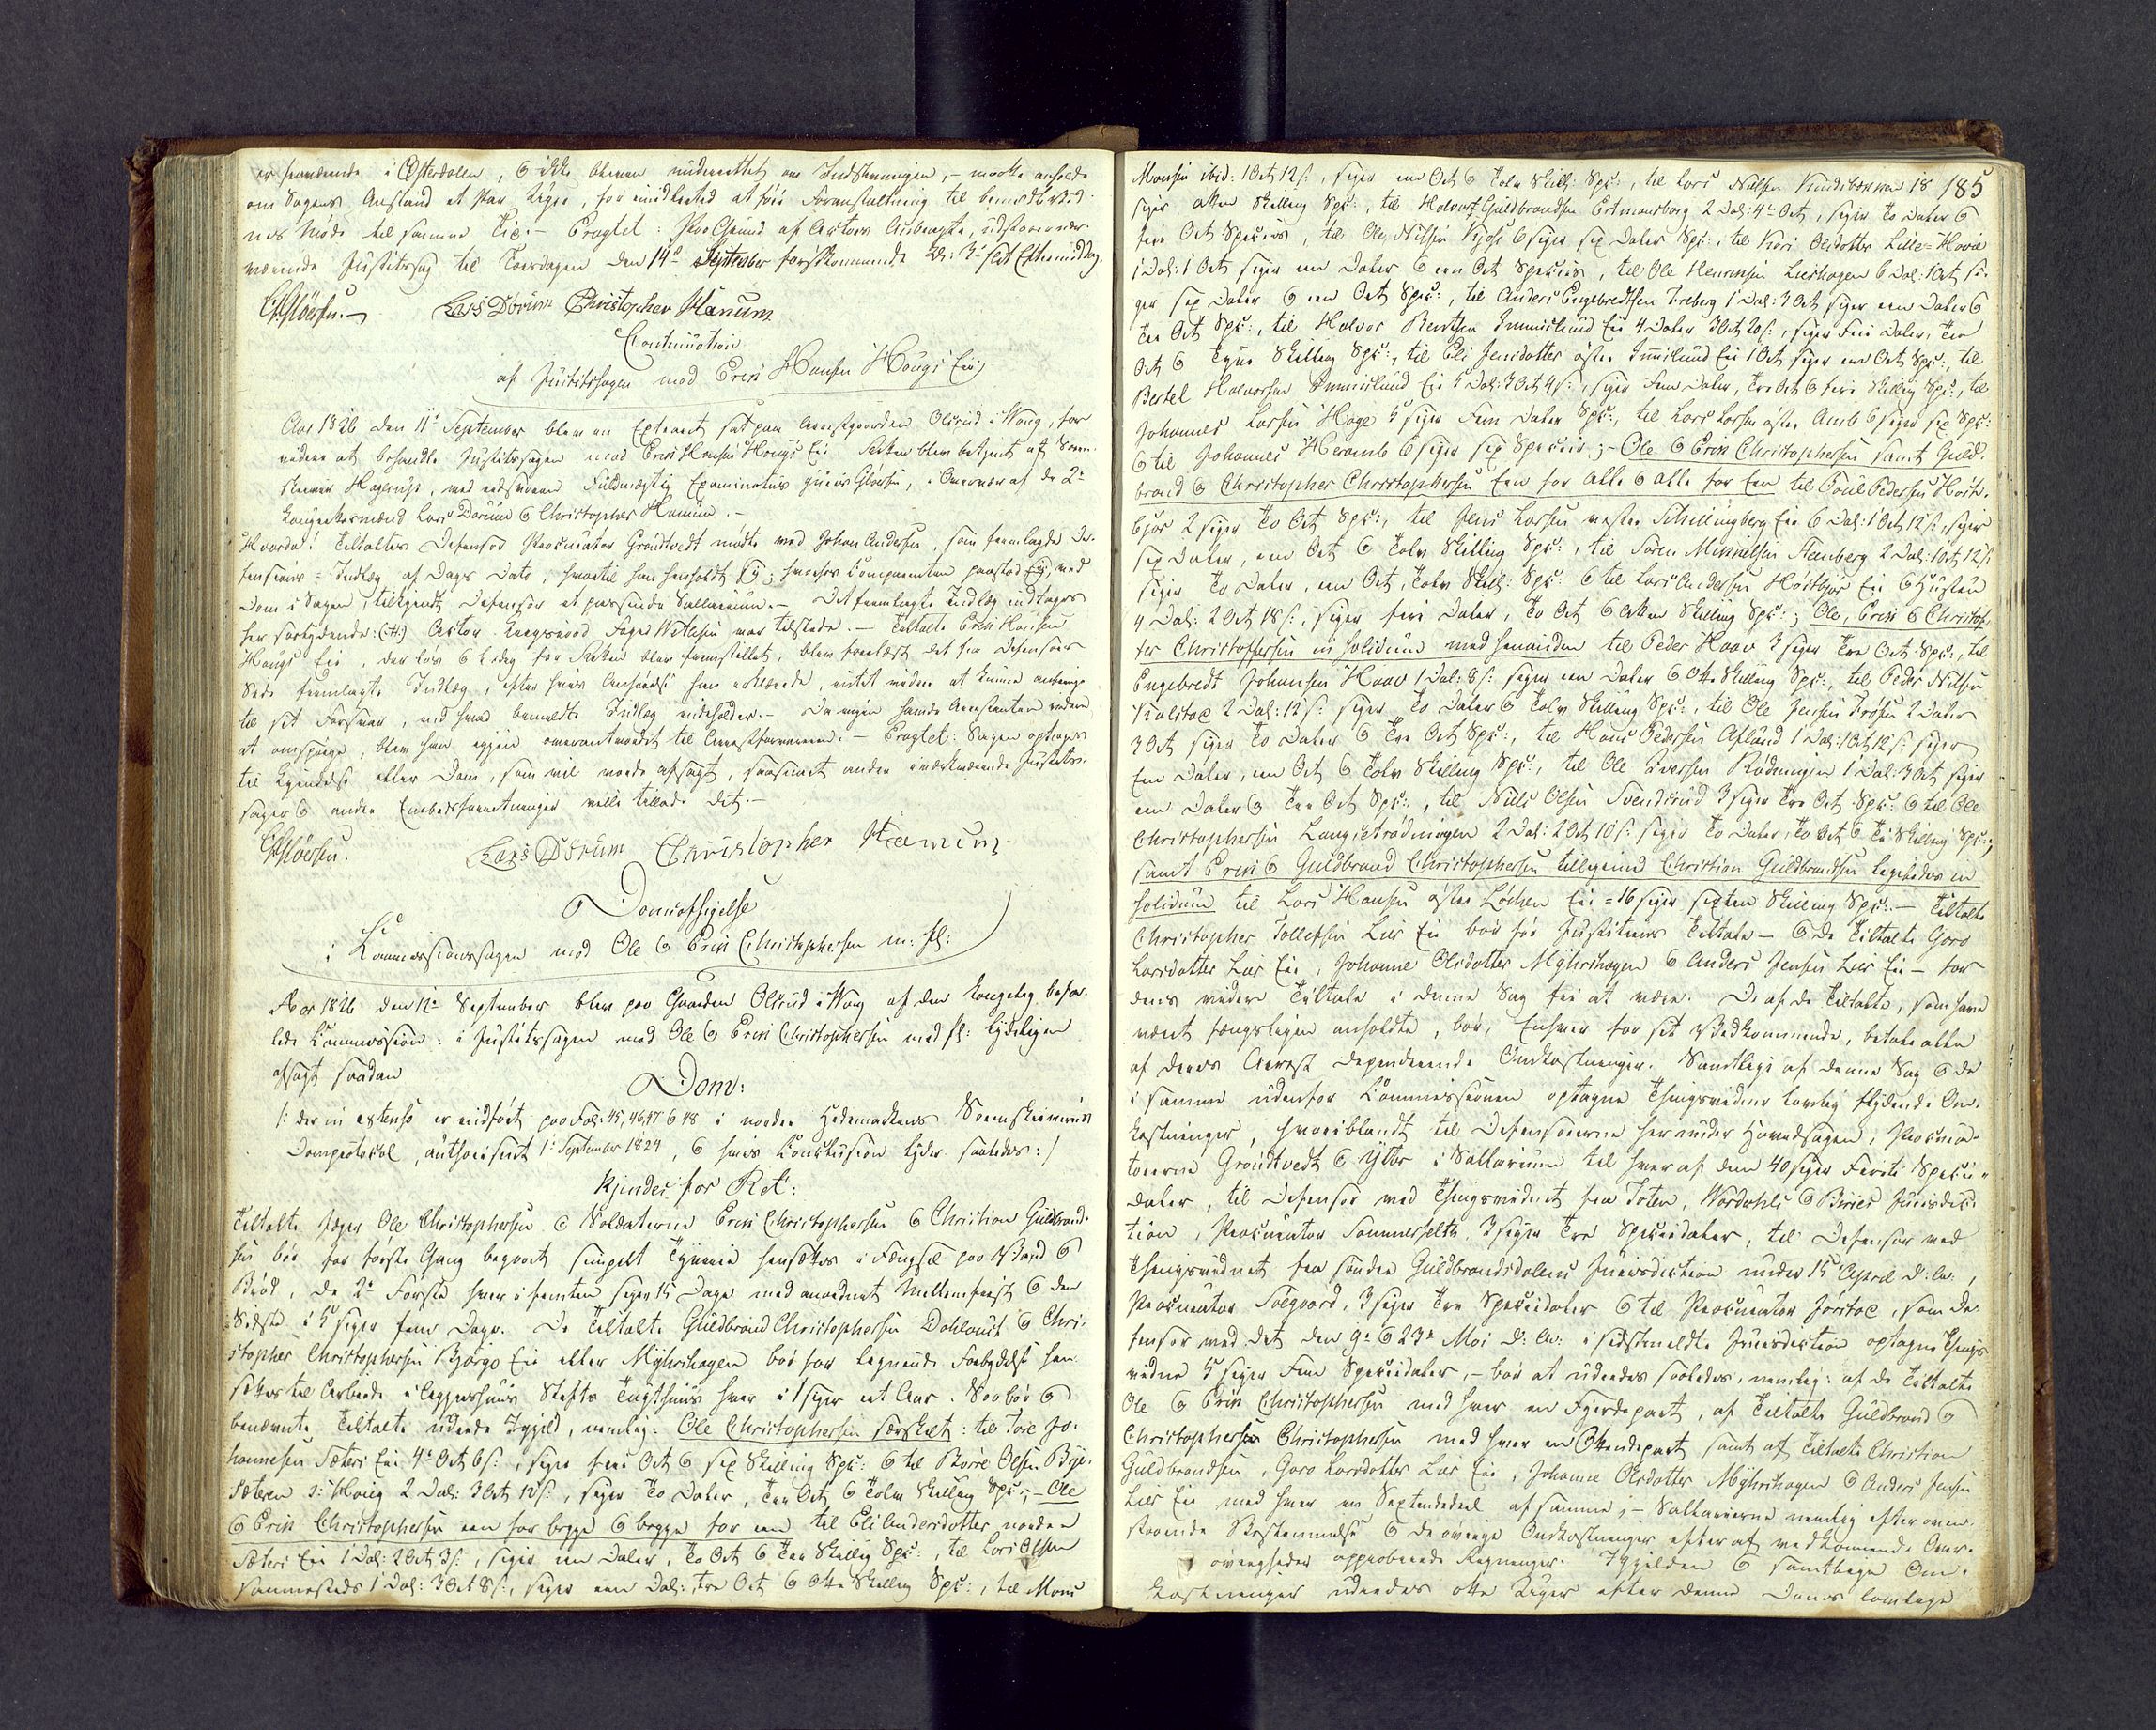 er henværende i Østerdalen, og ikke bleven underrettet om Indstevningen, – maatte anholde
om Sagens Anstand et Par Uger, for imidlertid at føie Foranstaltning til bemeldte Vid-
nes Møde til samme Tid. – Eragtet: Paa Grund af Actors Anbragte, udstaaer nær-
værende Justitssag til Torsdagen den 14de September førstkommende Kl: 3 slet Eftermiddag.
Lars Dørum Christopher Hanum
Continuation
af Justitssagen mod Erik Hansen Hougs Eie,
Aar 1826 den 11te September blev en Extraret sat paa Arrestgaarden Olsrud i Vang, for
videre at behandle Justitssagen mod Erik Hansen Hougs Eie. Retten blev betjent af Soren-
skriver Hagerups, med edsvoren Fuldmægtig Examinatus juris Gløersen, i Overvær af de 2de
Laugrettesmænd Lars Dørum og Christopher Hanum. –
Hvorda! Tiltaltes Defensor Procurator Grøndtvedt mødte ved Johan Andersen, som fremlagde De-
fensions-Indlæg af Dags Dato, hvortil han henholdt sig; hvorhos Comparenten paastod sig, ved
Dom i Sagen, tilkjendt Defensor et passende Sallarium. – Det fremlagte Indlæg indtages
her saalydende: (:H:) Actor Kongsfoged Foged Wetlesen var tilstede. – Tiltalte Erik Hansen
Hougs Eie, der løs og ledig for Retten blev fremstillet, blev forelæst det fra Defensors
Side fremlagte Indlæg, efter hvis Anhørelse han erklærede, intet videre at kunne anbringe
til sit Forsvar, end hvad bemeldte Indlæg indeholder. – Da ingen havde Arrestanten videre
at omspørge, blev han igjen overantvordet til Arrestforvareren. – Eragtet: Sagen optages
til Kjendelse eller Dom, som vil vorde afsagt, saasnart andre indestaaende Justits-
sager og andre Embedsforretninger ville tillade det. –
Lars Dørum Christopher Hanum
Domsafsigelse
i Commissionssagen mod Ole og Erik Christophersen m: fl:
Aar 1826 den 12te September blev paa Gaarden Olsrud i Vang af den kongelig befa-
lede Commission: i Justitssagen mod Ole og Erik Christophersen med fl: lydeligen
afsagt saadan
Dom:
/: der in extenso er indført paa Fol: 45, 46, 47 og 48 i nordre Hedemarkens Sorenskriveries
Domprotocol, authoriseret 1te September 1824, og hvis Conklusion lyder saaledes:/
Kjendes for Ret:
Tiltalte Jæger Ole Christophersen og Soldaterne Erik Christophersen og Christian Guldbrand-
sen bør for første Gang begaaet simpelt Tyverie hensættes i Fængsel paa Vand og
Brød, de 2de Første hver i femten siger 15 Dage med anordnet Mellemfrist og den
Sidste i 5 siger fem Dage. De tiltalte Guldbrand Christophersen Dahloust og Chri-
stopher Christophersen Bjørge Eie eller Myhrhagen bør for lignende Forbrydelse hen-
sættes til Arbeide i Aggershuus Stifts Tugthuus hver i 1 siger eet Aar. Saa bør og
benævnte Tiltalte udrede Igjeld, nemlig: Ole Christophersen særskilt: til Tore Jo-
hannesen Sæteri Eie 4 Ort 6 s:, siger fire Ort og sex Skilling Spe: og til Børre Olsen Bye-
sæteren i Houg 2 Dal: 3 Ort 12 s:, siger to Daler, tre Ort og tolv Skilling Spe:; – Ole
og Erik Christophersen een for begge og begge for een til Eli Andersdotter nordre
Sæteri Eie 1 Dal: 2 Ort 3 s:, siger een Daler, to Ort og tre Skilling Spe:, til Lars Olsen
sammesteds 1 Dal: 3 Ort 8 s:, siger een Dal: tre Ort og otte Skilling Spe:, til Mons
185
Monsen ibid: 1 Ort 12 s:, siger een Ort og tolv Skill: Spe:, til Lars Nilsen 18
siger atten Skilling Spe:, til Halvor Guldbrandsen Estmansborg 2 Dal: 4 Ort, siger to Daler og
fire Ort Species, til Ole Nilsen Kjose 6 siger sex Daler Spe:, til Kari Olsdotter Lille-Hovie
1 Dal: 1 Ort siger een Daler og een Ort Species, til Ole Henriksen Lierhagen 6 Dal: 1 Ort, si-
ger sex Daler og een Ort Spe:, til Anders Engebredtsen Freberg 1 Dal: 3 Ort siger een Daler og
tre Ort Spe:, til Halvor Berntsen Immislund Eie 4 Daler 3 Ort 20 s:, siger fire Daler, tre
Ort og tyve Skilling Spe:, til Eli Jensdotter østre Immislund Eie 1 Ort siger een Ort Spe:, til
Bertel Halvorsen Immislund Eie 5 Dal: 3 Ort 4 s:, siger fem Daler, tre Ort og fire Skilling Spe:, til
Johannes Larsen Hage 5 siger fem Daler Spe:, til Lars Larsen østre Amb 6 siger sex Spe:
og til Johannes Heramb 6 siger sex Species; – Ole og Erik Christophersen samt Guld-
brand og Christopher Christophersen Een for Alle og Alle for Een til Poul Pedersen Hoste-
bjør 2 siger to Ort Spe:, til Jens Larsen vestre Schillingsberg Eie 6 Dal: 1 Ort 12 s:, siger
sex Daler, een Ort og tolv Skilling Spe:, til Søren Mikkelsen Stenberg 2 Dal: 1 Ort 12 s:
siger to Daler, een Ort, tolv Skill: Spe: og til Lars Andersen Hostbjør Eie og Hustru
4 Dal: 2 Ort 18 s:, siger fire Daler, to Ort og atten Skilling Spe:; Ole, Erik og Christof-
fer Christoffersen in solidum med hinanden til Peder Haav 3 siger tre Ort Spe:, til
Engebredt Johansen Haav 1 Dal: 8 s: siger een Daler og otte Skilling Spe:, til Peder Nilsen
Kalstad 2 Dal: 12 s: siger to Daler og tolv Skilling Spe:, til Ole Jensen Frøsen 2 Daler
3 Ort siger to Daler og tre Ort Spe:, til Hans Pedersen Afland 1 Dal: 1 Ort 12 s: siger
Een Daler, een Ort og tolv Skilling Spe:, til Ole Iversen Rødningen 1 Dal: 3 Ort siger
een Daler og tre Ort Spe:, til Niels Olsen Svendsrud 3 siger tre Ort Spe: og til Ole
Christophersen Langsetrødningen 2 Dal: 2 Ort 10 s: siger to Daler, to Ort og ti Skilling Spe:;
samt Erik og Guldbrand Christophersen tilligemed Christian Guldbrandsen ligeledes in
solidum til Lars Hansen østre Løchen Eie = 16 siger sexten Skilling Spe:. – Tiltalte
Christopher Tollefsen Lier Eie bør for Justitiens Tiltale – og de Tiltalte Goro
Larsdotter Lier Eie, Johanne Olsdotter Myhrhagen og Anders Jensen Lier Eie – for
dens videre Tiltale i denne Sag fri at være. De af de Tiltalte, som have
været fængsligen anholdte, bør, Enhver for sit Vedkommende, betale alle
af deres Arrest dependerende Omkostninger. Samtlige af denne Sag og de
i samme udenfor Commissionen optagne Thingsvidner lovlig flydende Om-
kostninger, hvoriblandt til Defensorerne herunder Hovedsagen, Procura-
torerne Grøndtvedt og Ytter i Sallarium til hver af dem 40 siger Firti Specie-
daler, til Defensor ved Thingsvidnet fra Toten, Vardahls og Biries Jurisdic-
tion, Procurator Sommerfeldt, 3 siger tre Speciedaler, til Defensor ved
Thingsvidnet fra søndre Guldbrandsdalens Jurisdiction under 15 April d: A:,
Procurator Solgaard, 3 siger tre Speciedaler og til Procurator Jørstad, som De-
fensor ved det den 9de og 23de Mai d: A: i sidstmeldte Jurisdiction optagne Things-
vidne 5 siger fem Speciedaler, – bør at udredes saaledes, nemlig: af de Tiltalte
Ole og Erik Christophersen med hver en Fjerdepart, af Tiltalte Guldbrand og
Christophersen Christophersen med hver en Ottendepart samt af Tiltalte Christian
Guldbrandsen, Goro Larsdotter Lier Eie, Johanne Olsdotter Myhrhagen og Anders Jensen
Lier Eie med hver en Sextendedeel af samme; – Sallarierne nemlig efter oven-
staaende Bestemmelse og de øvrige Omkostninger efter af vedkommende Over-
øvrigheder approberede Regninger. Igjelden og samtlige Om-
kostninger udredes otte Uger efter denne Doms lovlige